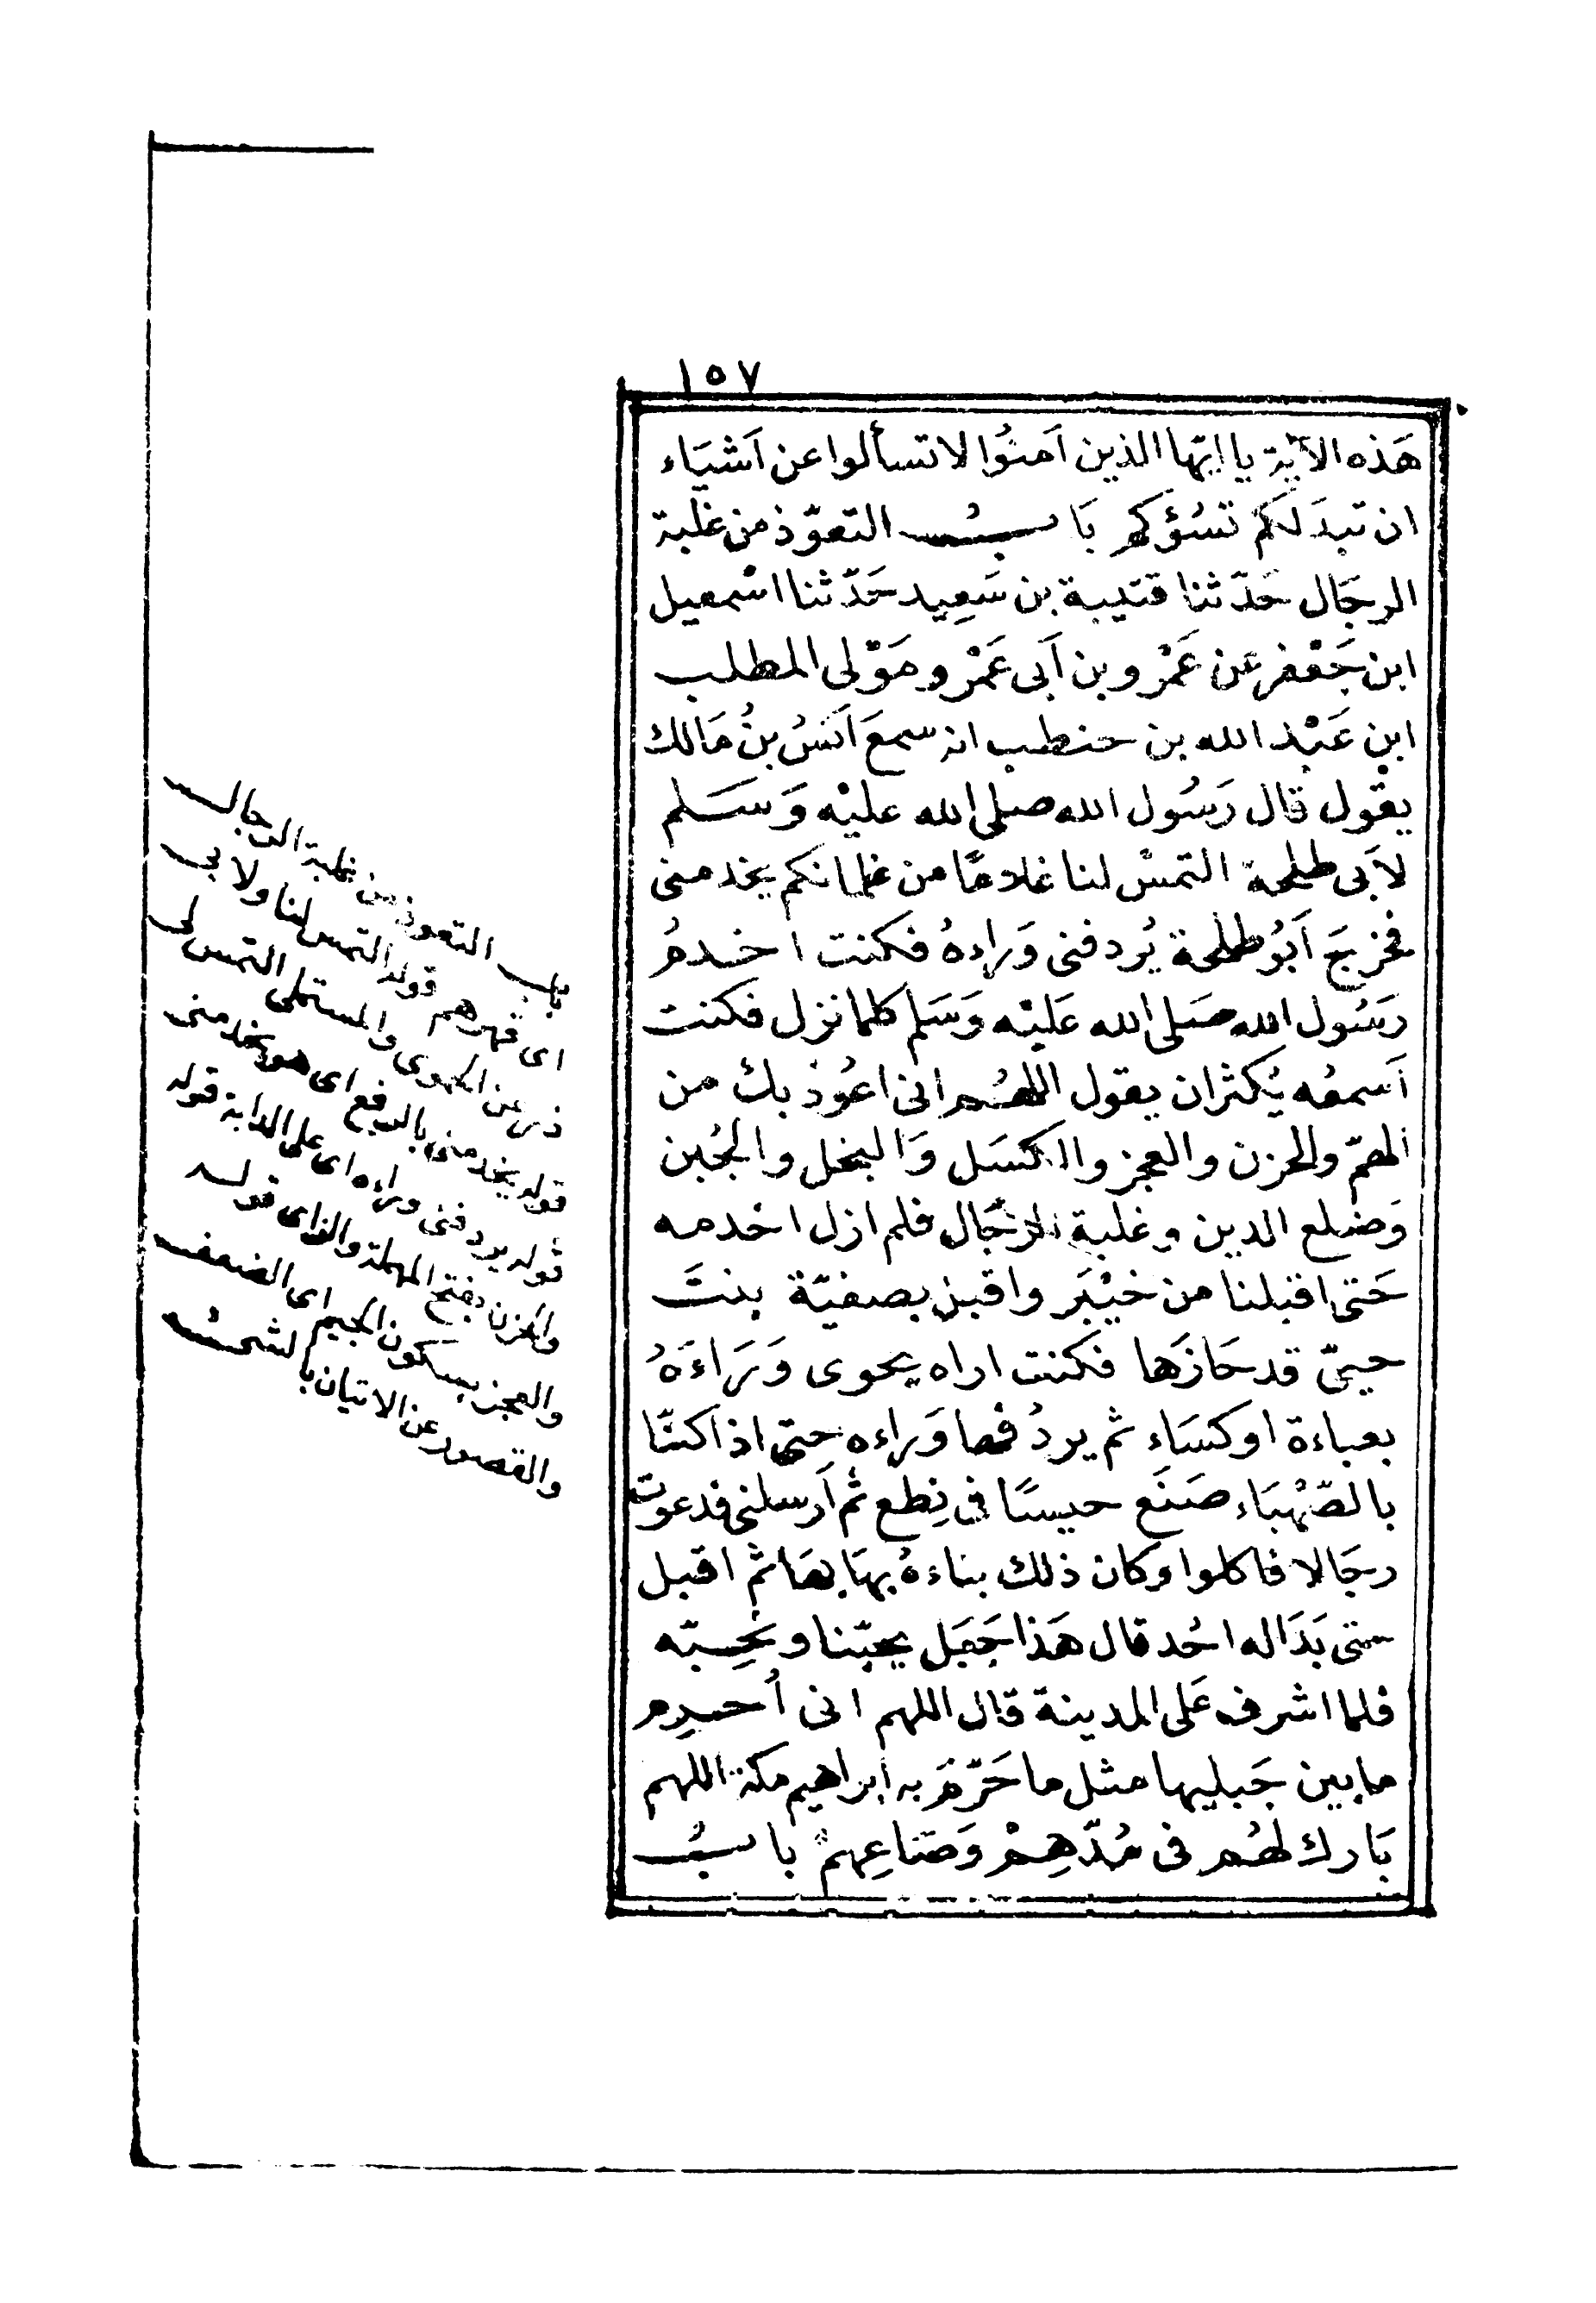 ١٥٧
هَذه الآية يا ايّها الذين آمنُوا لا تسألوا عن اَشيَاء
ان تبدَ لكم تسُؤكم بَابُ التعوّذ من غلبة
الرجَال حَدّثنا قتيبة بن سَعِيد حَدّثنا اسْمعيل
ابن جَعْفر عن عَمْرو بن اَبى عَمْرو مَوْلى المطلب
ابن عَبْد الله بن حنطب انه سمعَ اَنسُ بنُ مَالك
يقْول قال رَسُول الله صلى الله عليْه وَسَلم
لاَبى طلحة التمسْ لنا غلامًا من غلمانكم يخدمنى
فخرجَ اَبُو طلحة يُردفنى وَراءهُ فكنت اخدمُ
رَسُول الله صَلى الله عَليْه وَسَلم كلما نزل فكنت
اَسمعُه يُكثران يقول اللهُم انى اعُوذ بك من
الهمّ والحزن والعجز والكسَل وَالبخل والجُبن
وَضلع الدين وغلبة الرجَال فلم ازل اخدمه
حَتى اقبلنا من خيْبَر واقبل بصفيّة بنتَ
حيىّ قد حَازَها فكنت اراه يحوى وَرَاءَهُ
بعباءة اوكسَاءٍ ثم يردُفها وَراءه حتى اذا كنّا
بالصّهْبَاء صَنَع حيسًا فى نِطع ثم اَرسلنى فدعوت
رجَالا فاكلوا وكان ذلك بناءهُ بهَا بهَا ثم اقبل
حتى بَدَا له احُد قال هَذا جَبَل يحبّنا ونحِبّه
فلما اشرف عَلى المدينة قال اللهم انى اُحرِم
ما بين جَبليها مثل ما حَرّمَ به ابراهيم مكة اللهم
بَارك لهُم فى مُدّهِمْ وَصَاعِهمْ بابُ
باب التعوذ من غلبة الرجال
اى قهرهم قوله التمس لنا ولابى
ذر عن الكموى والمستملى التمس لى
قوله يخدمنى بالرفع اى هو يخدمنى
قوله يردفنى وراءه اى على الدابة قوله
والحزن بفتح المهملة والزاى قوله
والعجز بسكون الجيم اى الضعف
والقصور عن الاتيان بالشىء